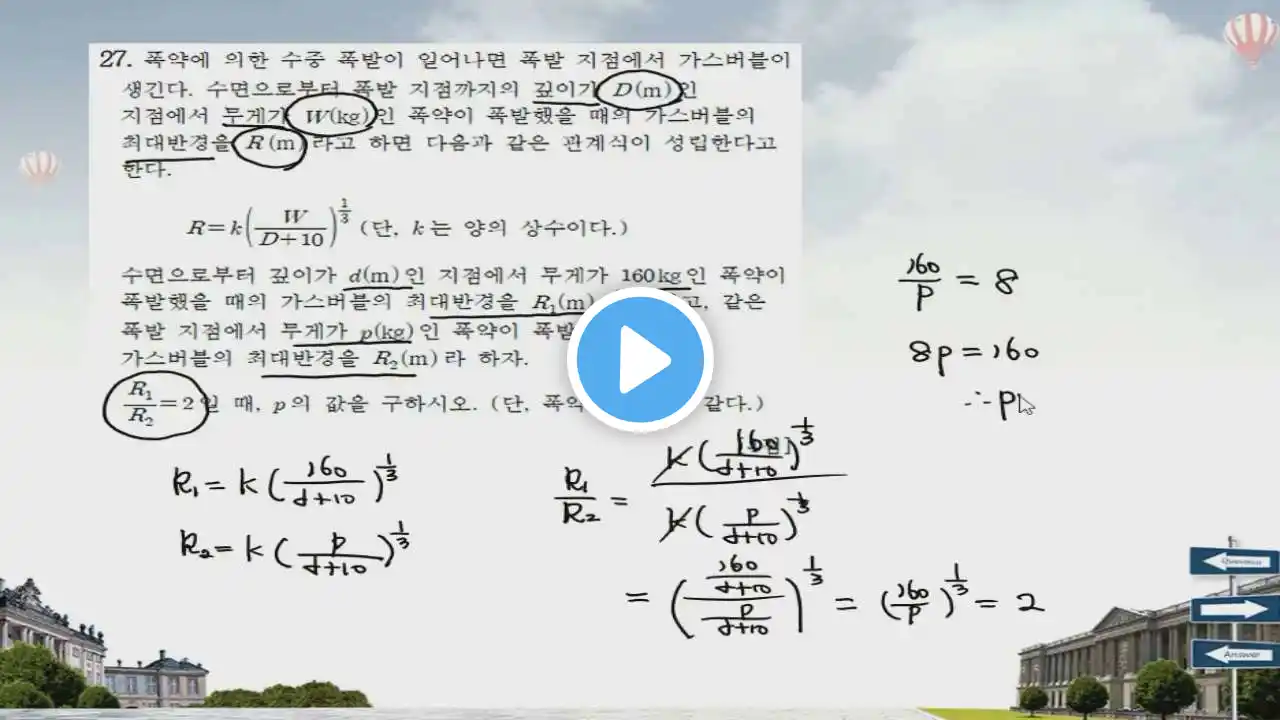 27. 폭약에 의한 수중 폭발이 일어나면 폭발 지점에서 가스버블이
생긴다. 수면으로부터 폭발 지점까지의 깊이가 D(m)인
지점에서 무게가 W(kg)인 폭약이 폭발했을 때의 가스버블의
최대반경을 R(m)라고 하면 다음과 같은 관계식이 성립한다고
한다.
R=k(W/(D+10))^(1/3) (단, k는 양의 상수이다.)
수면으로부터 깊이가 d(m)인 지점에서 무게가 160kg인 폭약이
폭발했을 때의 가스버블의 최대반경을 R₁(m) 고, 같은
폭발 지점에서 무게가 p(kg)인 폭약이
가스버블의 최대반경을 R₂(m)라 하자.
R₁/R₂=2일 때, p의 값을 구하시오. (단, 같다.)
R₁=k(160/(d+10))^(1/3)
R₂=k(p/(d+10))^(1/3)
R₁/R₂ = k(160/(d+10))^(1/3) / k(p/(d+10))^(1/3)
= ((160/(d+10))/(p/(d+10)))^(1/3) = (160/p)^(1/3) = 2
160/p = 8
8p=160
∴ p
Question
Answer